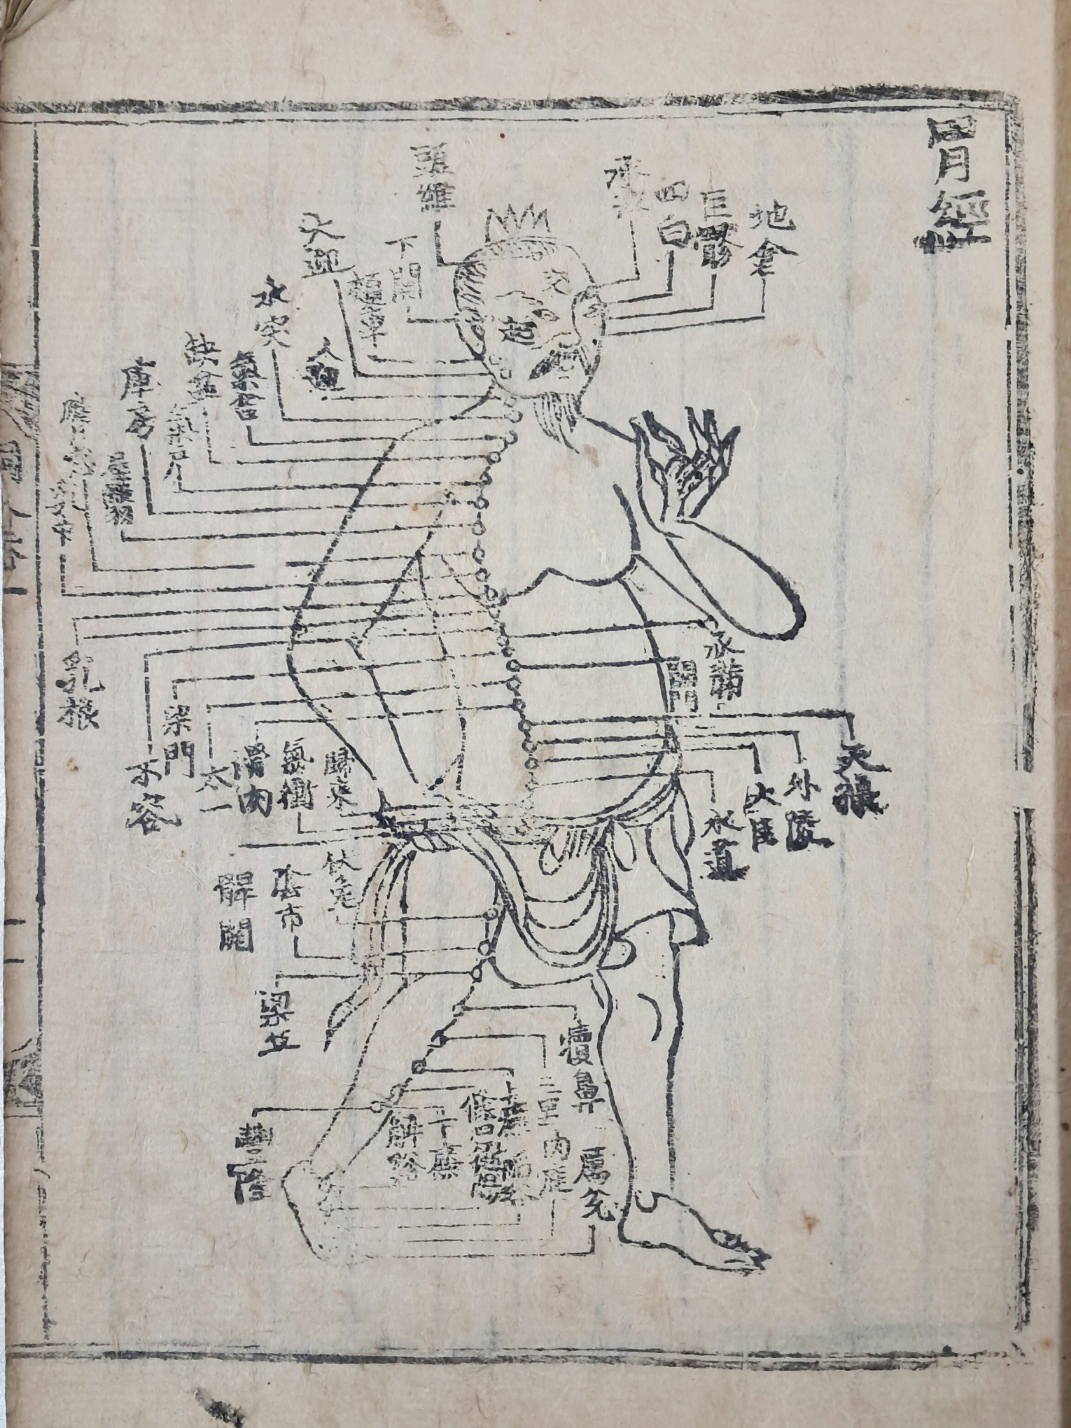 胃經
地倉
巨髎
四白
承泣
頭維
下關
頰車
大迎
人迎
水突
氣舍
缺盆
氣戶
庫房
屋翳
膺窓
乳中
乳根
承滿
關門
梁門
水谷
太一
滑肉
天樞
外陵
大巨
水道
歸來
氣衝
髀關
伏兔
陰市
梁丘
犢鼻
三里
豐隆
下廉
解谿
內庭
厲兌
起